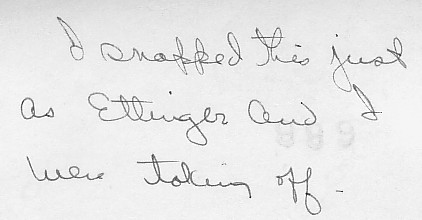 I snapped this just
as Ettinger and I
were taking off.